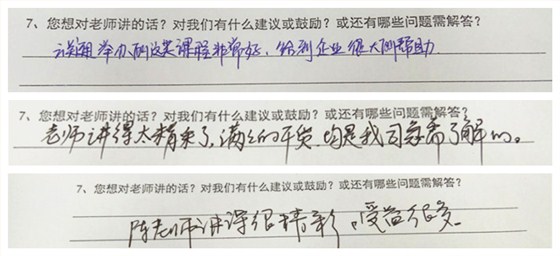 7、您想对老师讲的话？对我们有什么建议或鼓励？或还有哪些问题需解答？
举办的这类课程非常好，给到企业很大的帮助
7、您想对老师讲的话？对我们有什么建议或鼓励？或还有哪些问题需解答？
老师讲得太精采了，满满的干货，均是我司急需了解的。
7、您想对老师讲的话？对我们有什么建议或鼓励？或还有哪些问题需解答？
陈老师讲课很精彩，受益很多